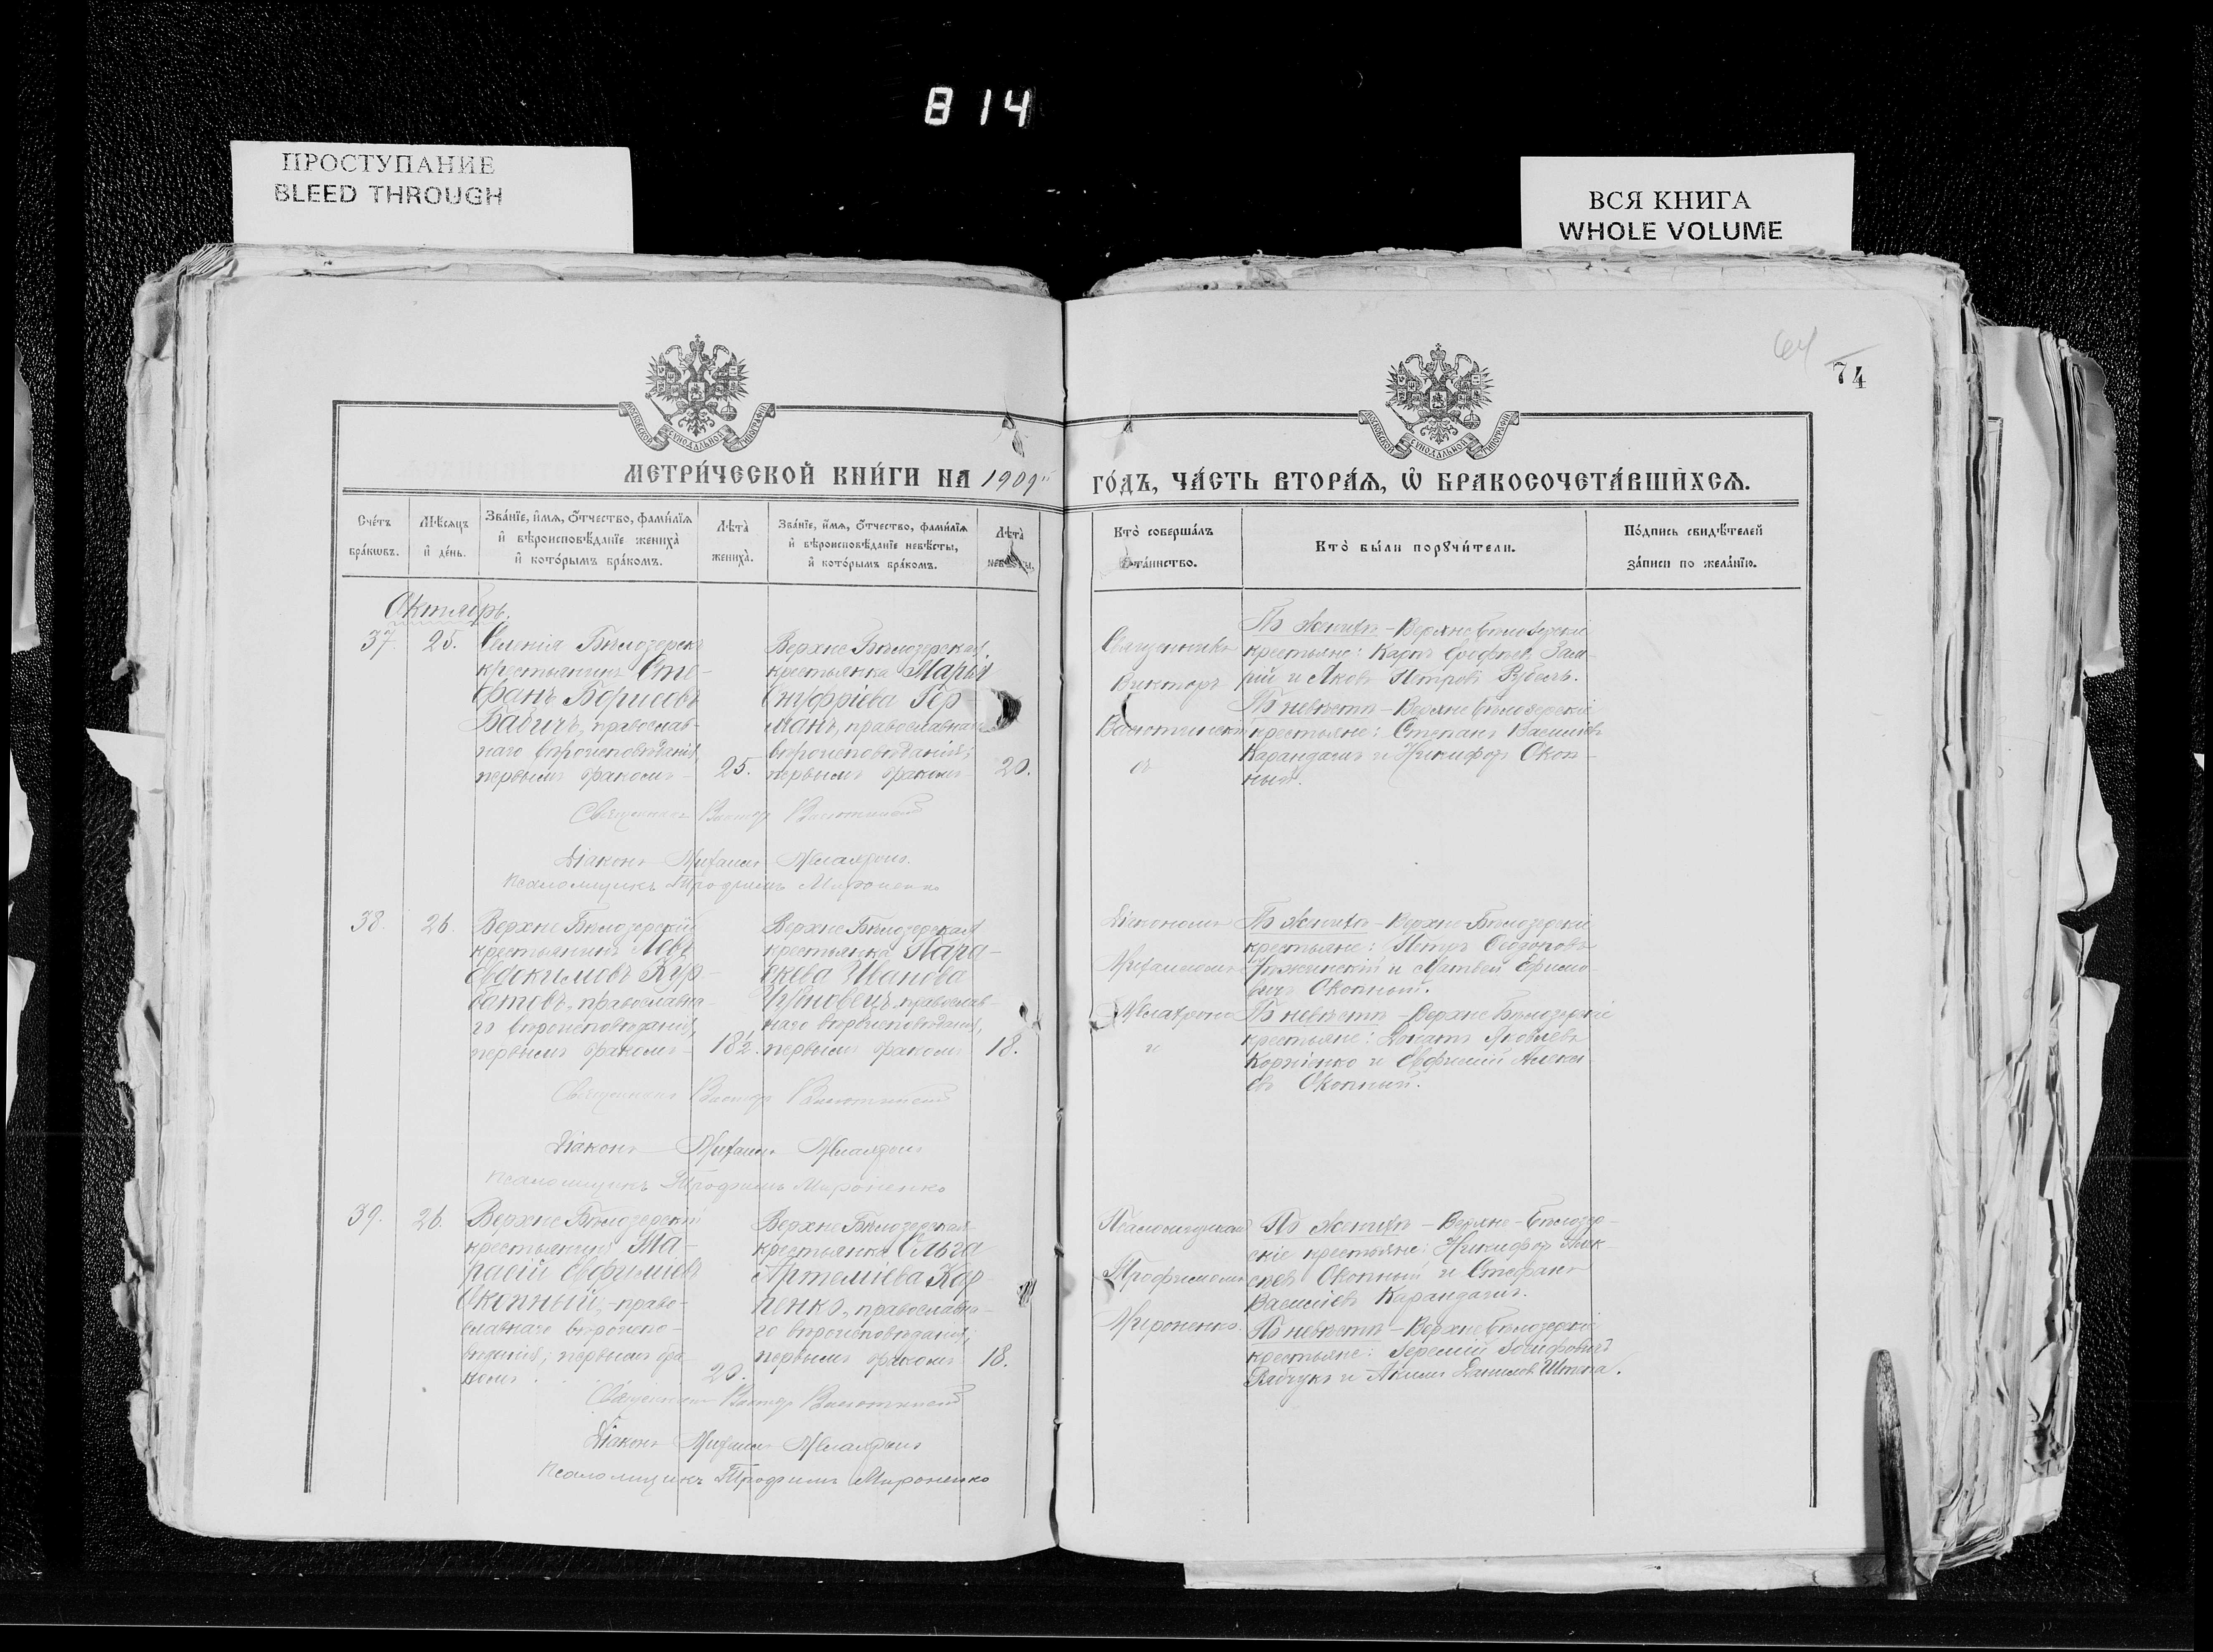 814
ПРОСТУПАНИЕ
BLEED THROUGH
ВСЯ КНИГА
WHOLE VOLUME
64
74
МОСКОВСКОЙ СѴНОДАЛЬНОЙ ТИПОГРАФІИ
МОСКОВСКОЙ СѴНОДАЛЬНОЙ ТИПОГРАФІИ
МЕТРИ́ЧЕСКОЙ КНИ́ГИ НА 1909
ГО́ДЪ, ЧА́СТЬ ВТОРА́Ѧ, Ѡ҆ БРАКОСОЧЕТА́ВШИХСѦ.
Сче́тъ
бра́кѡвъ.
Мѣ́сѧцъ
и҆ де́нь.
Зва́нїе, и҆́мѧ, ѻ҆́тчество, фами́лїѧ
и҆ вѣроисповѣ́данїе жениха̀
и҆ кото́рымъ бра́комъ.
Лѣ́та̀
жениха̀.
Зва́нїе, и҆́мѧ, ѻ҆́тчество, фами́лїѧ
и҆ вѣроисповѣ́данїе невѣ́сты,
и҆ кото́рымъ бра́комъ.
Лѣ́та̀
невѣ́сты.
Кто̀ соверша́лъ
та́инство.
Кто̀ бы́ли порꙋчи́тели.
По́дпись свидѣ́телей
за́писи по жела́нїю.
Октябрь.
37.
25.
Бѣлозерскъ
крестьянинъ Сте-
фанъ Борисовъ
Бабичъ, православ-
наго вѣроисповѣданія,
первымъ бракомъ
25.
Верхне Бѣлозерская
крестьянка Марья
Онуфріева Гер-
манъ, православнаго
вѣроисповѣданія;
первымъ бракомъ
20.
Священникъ
Викторъ
По женихѣ - Верхне Бѣлозерскіе
крестьяне: Карпъ
и Яковъ Петровъ
По невѣстѣ - Верхне Бѣлозерскіе
крестьяне: Степанъ Васильевъ
Карандашъ и Никифоръ Окоп-
ный.
Священникъ Викторъ
Діаконъ Михаилъ
Псаломщикъ Трофимъ Мироненко
38.
26.
Верхне Бѣлозерскій
крестьянинъ Левъ
Евдокимовъ Кур-
батовъ, православна-
го вѣроисповѣданія,
первымъ бракомъ
18½.
Верхне Бѣлозерская
крестьянка Пара-
скева Иванова
православ-
наго вѣроисповѣданія,
первымъ бракомъ
18.
Діакономъ
Михаиломъ
По женихѣ - Верхне-Бѣлозерскіе
крестьяне: Петръ Ѳедоровъ
и Матвѣй Ефимо-
вичъ Окопный.
По невѣстѣ - Верхне Бѣлозерскіе
крестьяне: Яковлевъ
Корніенко и Евфимій Алексѣ-
евъ Окопный.
Священникъ Викторъ
Діаконъ Михаилъ
Псаломщикъ Трофимъ Мироненко
39.
26.
Верхне Бѣлозерскій
крестьянинъ Та-
расій Евфиміевъ
Окопный, право-
славнаго вѣроиспо-
вѣданія; первымъ бра-
комъ
20.
Верхне Бѣлозерская
крестьянка Ольга
Артеміева Кор-
ненко, православна-
го вѣроисповѣданія;
первымъ бракомъ
18.
Псаломщикомъ
Трофимомъ
Мироненко.
По женихѣ - Верхне-Бѣлозер-
скіе крестьяне: Никифоръ Алек-
сѣевъ Окопный и Стефанъ
Васильевъ Карандашъ.
По невѣстѣ - Верхне Бѣлозерскіе
крестьяне: Іеремій Іосифовичъ
Рябчукъ и Акимъ Даниловъ Штепа.
Священникъ Викторъ
Діаконъ Михаилъ
Псаломщикъ Трофимъ Мироненко